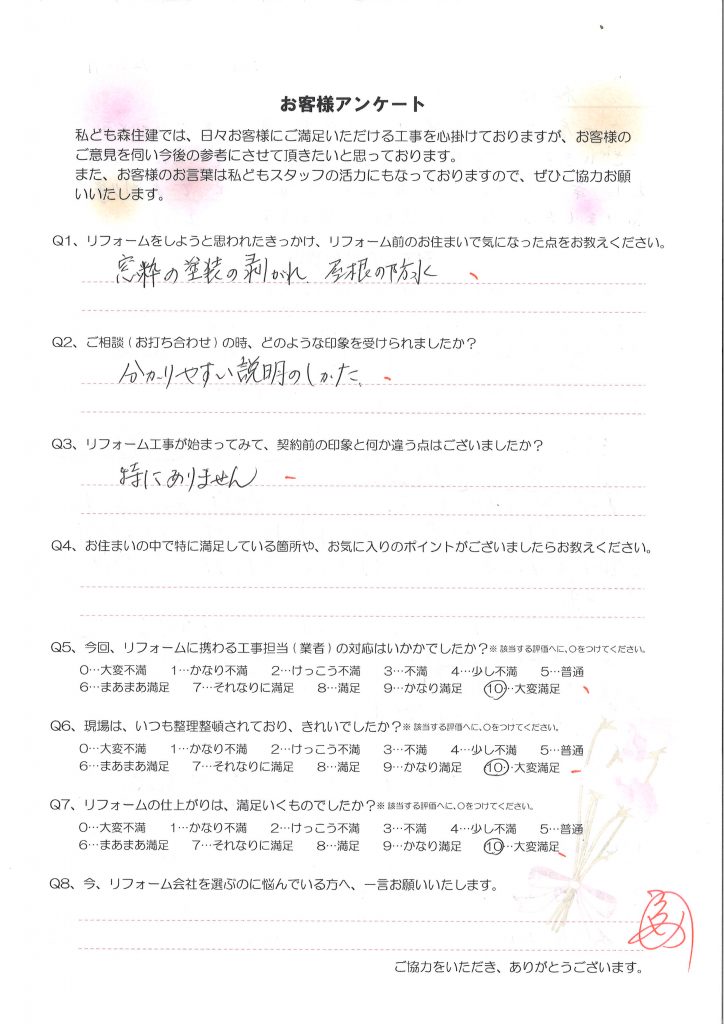 お客様アンケート
私ども森住建では、日々お客様にご満足いただける工事を心掛けておりますが、お客様の
ご意見を伺い今後の参考にさせて頂きたいと思っております。
また、お客様のお言葉は私どもスタッフの活力にもなっておりますので、ぜひご協力お願
いいたします。
Q1、リフォームをしようと思われたきっかけ、リフォーム前のお住まいで気になった点をお教えください。
窓枠の塗装の剥がれ、屋根の防水
Q2、ご相談(お打ち合わせ)の時、どのような印象を受けられましたか?
分かりやすい説明のしかた、
Q3、リフォーム工事が始まってみて、契約前の印象と何か違う点はございましたか?
特にありません
Q4、お住まいの中で特に満足している箇所や、お気に入りのポイントがございましたらお教えください。
Q5、今回、リフォームに携わる工事担当(業者)の対応はいかかでしたか?※該当する評価へに、〇をつけてください。
0…大変不満 1…かなり不満 2…けっこう不満 3…不満 4…少し不満 5…普通
6…まあまあ満足 7…それなりに満足 8…満足 9…かなり満足 10…大変満足
Q6、現場は、いつも整理整頓されており、きれいでしたか?※該当する評価へに、〇をつけてください。
0…大変不満 1…かなり不満 2…けっこう不満 3…不満 4…少し不満 5…普通
6…まあまあ満足 7…それなりに満足 8…満足 9…かなり満足 10…大変満足
Q7、リフォームの仕上がりは、満足いくものでしたか?※該当する評価へに、〇をつけてください。
0…大変不満 1…かなり不満 2…けっこう不満 3…不満 4…少し不満 5…普通
6…まあまあ満足 7…それなりに満足 8…満足 9…かなり満足 10…大変満足
Q8、今、リフォーム会社を選ぶのに悩んでいる方へ、一言お願いいたします。
ご協力をいただき、ありがとうございます。